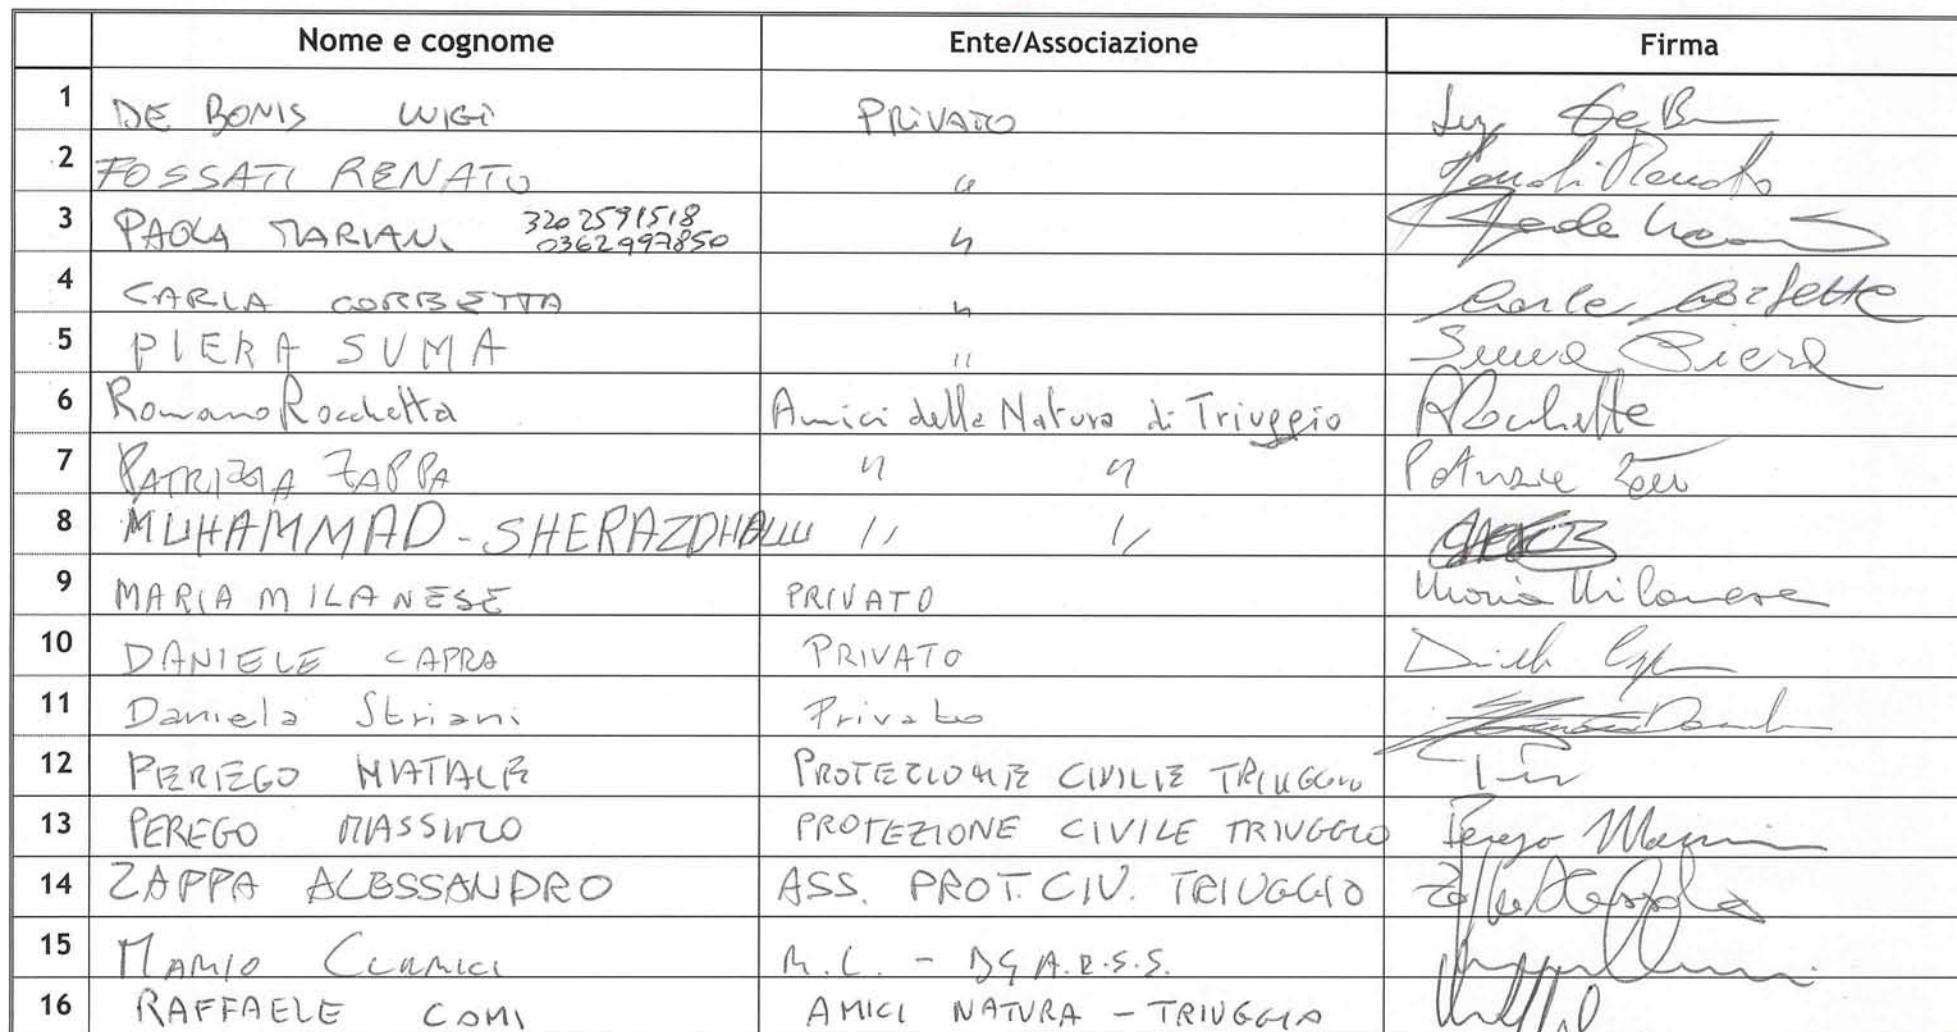 Nome e cognome Ente/Associazione Firma
1 DE BONIS LUIGI PRIVATO
2 FOSSATI RENATO " Fossati Renato
3 PAOLA MARIANI 3202591518 "
0362997850
4 CARLA CORBETTA " Carla Corbetta
5 PIERA SUMA " Suma Piera
6 Romano Rocchetta Amici della Natura di Triuggio RRocchetta
7 PATRIZIA ZAPPA " " Patrizia
8 MUHAMMAD - SHERAZ " "
9 MARIA MILANESE PRIVATO Maria Milanese
10 DANIELE CAPRA PRIVATO
11 Daniela Striani Privato
12 PEREGO NATALE PROTEZIONE CIVILE TRIUGGIO
13 PEREGO MASSIMO PROTEZIONE CIVILE TRIUGGIO Perego
14 ZAPPA ALESSANDRO ASS. PROT. CIV. TRIUGGIO
15 R.L. -
16 RAFFAELE COMI AMICI NATURA - TRIUGGIO